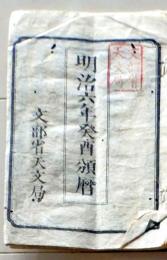 明治六年癸酉頒暦
文部省天文局